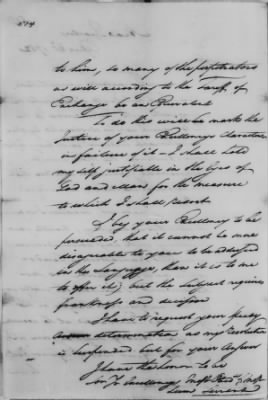 to him, so many of the perpetrators
as will according to the Tariff of
Exchange be an Equivalent
To do this would be marks the
Justice of your Excellency's character
in failure of it — I shall hold
my self justifiable in the Eyes of
God and Man for the measure
to which I shall resort
I beg your Excellency to be
persuaded, that it cannot be more
disagreable to you to be addressed
in this language, than it is to me
to offer it; but the subject requires
frankness and decision
I have to request your speedy
determination as my resolution
is suspended but for your Answer
I have the honor to be
Sir Yr Excellency's most Obed &
Hum Servant